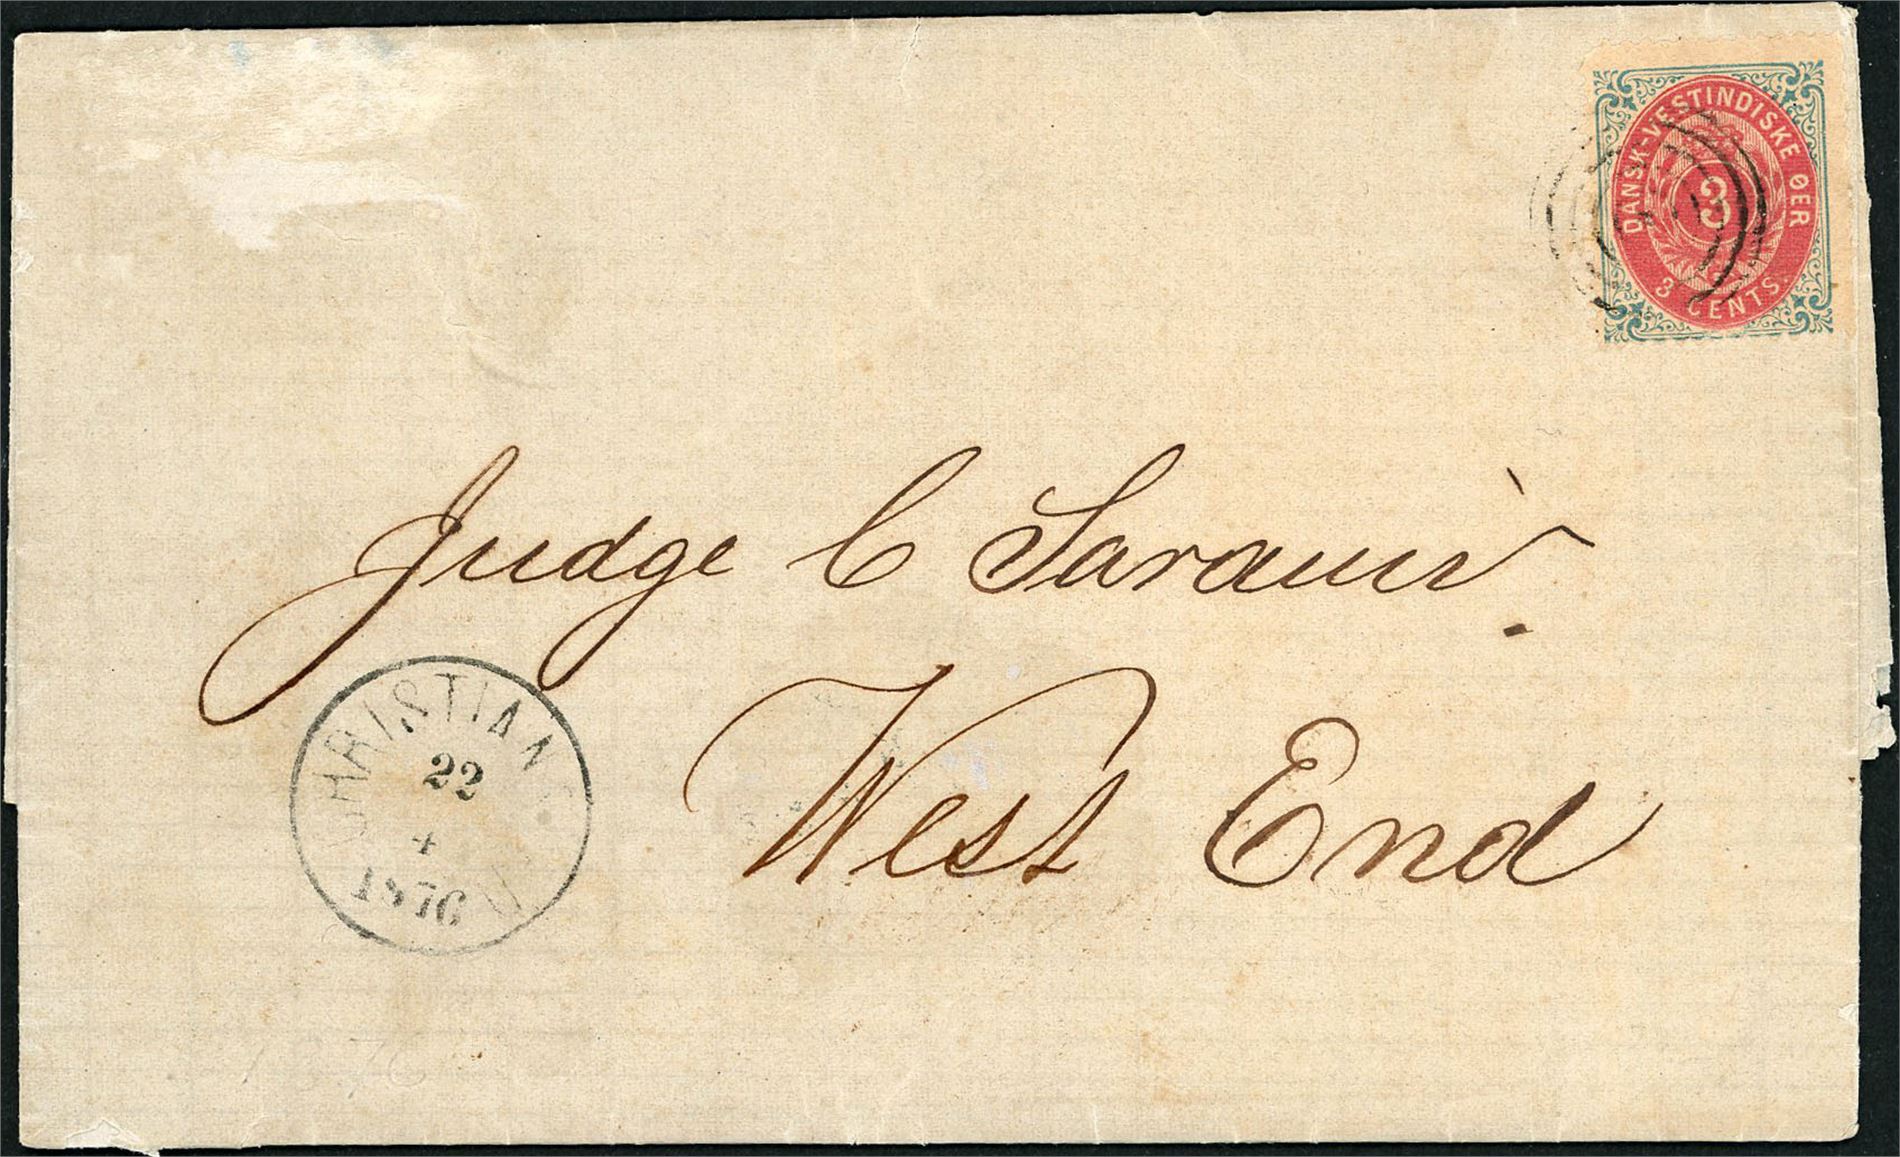 DANSK-VESTINDISKE ØER
3
3 CENTS
Judge C Sarauw
West End
CHRISTIAN
22
4
1876
1876